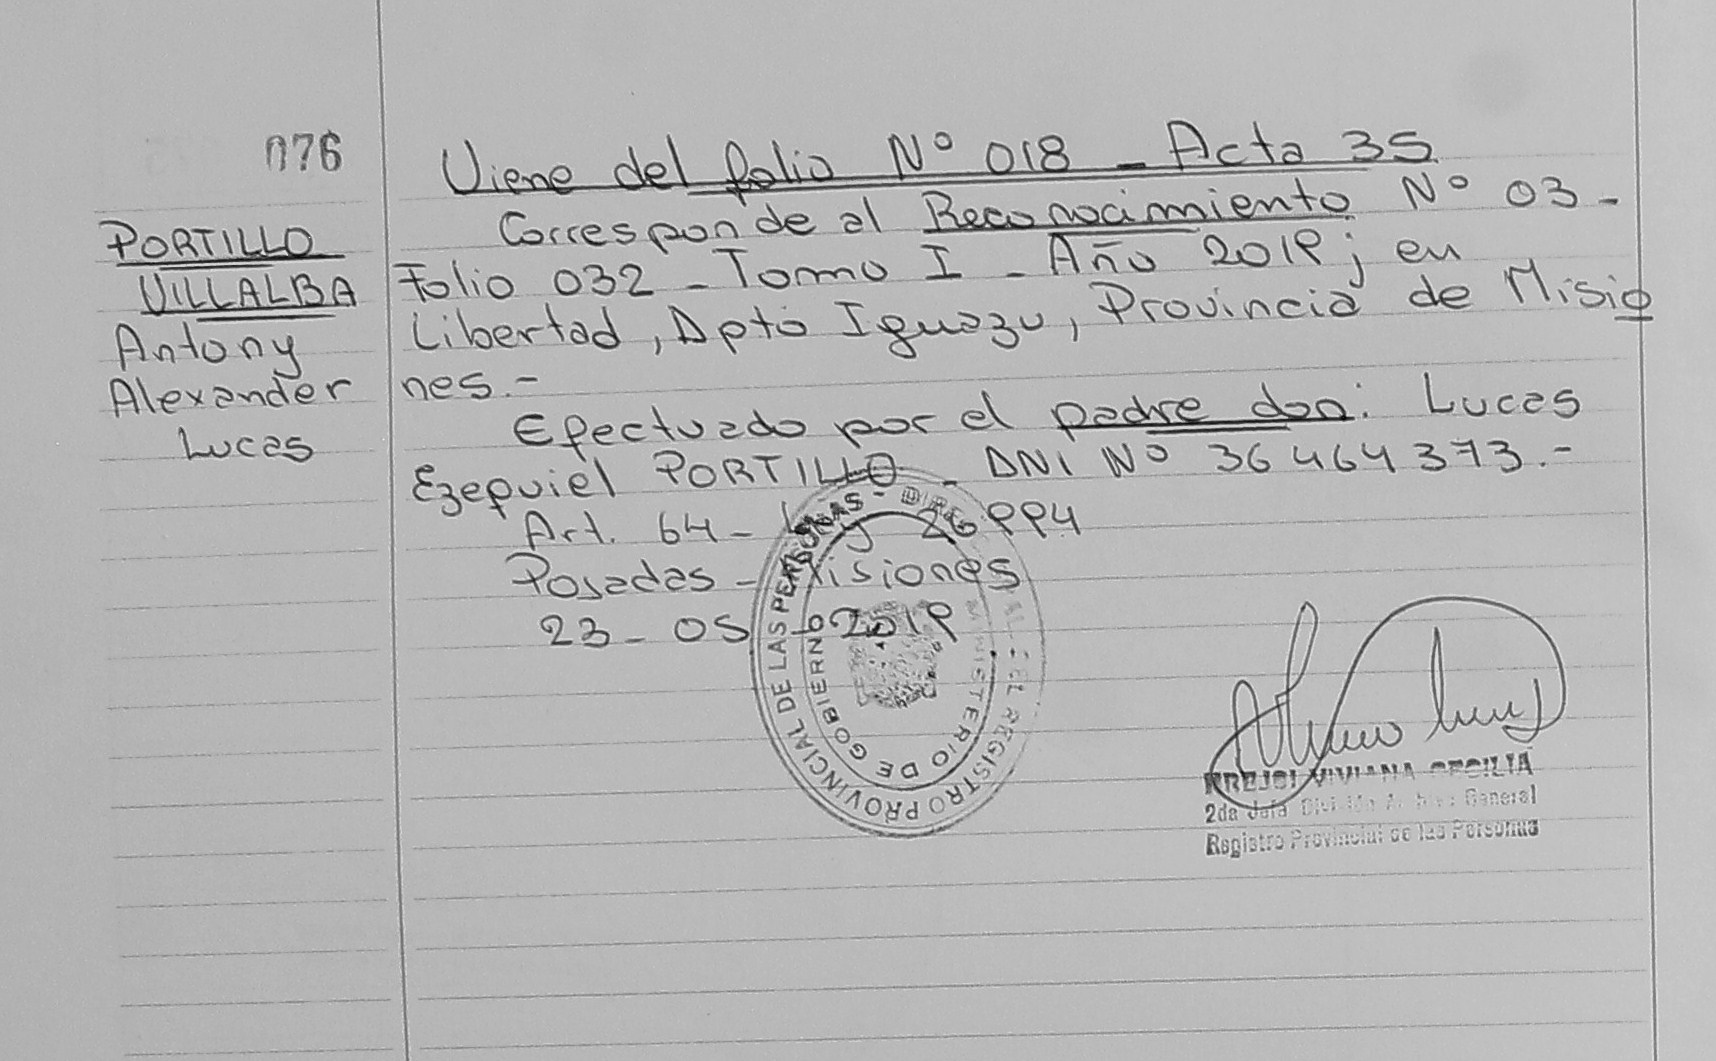 076
PORTILLO
VILLALBA
Antony
Alexander
Lucas
Viene del folio Nº 018 - Acta 35
Corresponde al Reconocimiento Nº 03 -
Folio 032 - Tomo I - Año 2019; en
Libertad, Dpto Iguazu, Provincia de Misio
nes.-
Efectuado por el padre don: Lucas
Ezequiel PORTILLO - DNI Nº 36464373.-
Art. 64 - Ley 26994
Posadas - Misiones
23 - 05 - 2019
REGISTRO PROVINCIAL DE LAS PERSONAS -
MINISTERIO DE GOBIERNO
KREJCI VIVIANA CECILIA
2da Jefa División Archivo General
Registro Provincial de las Personas